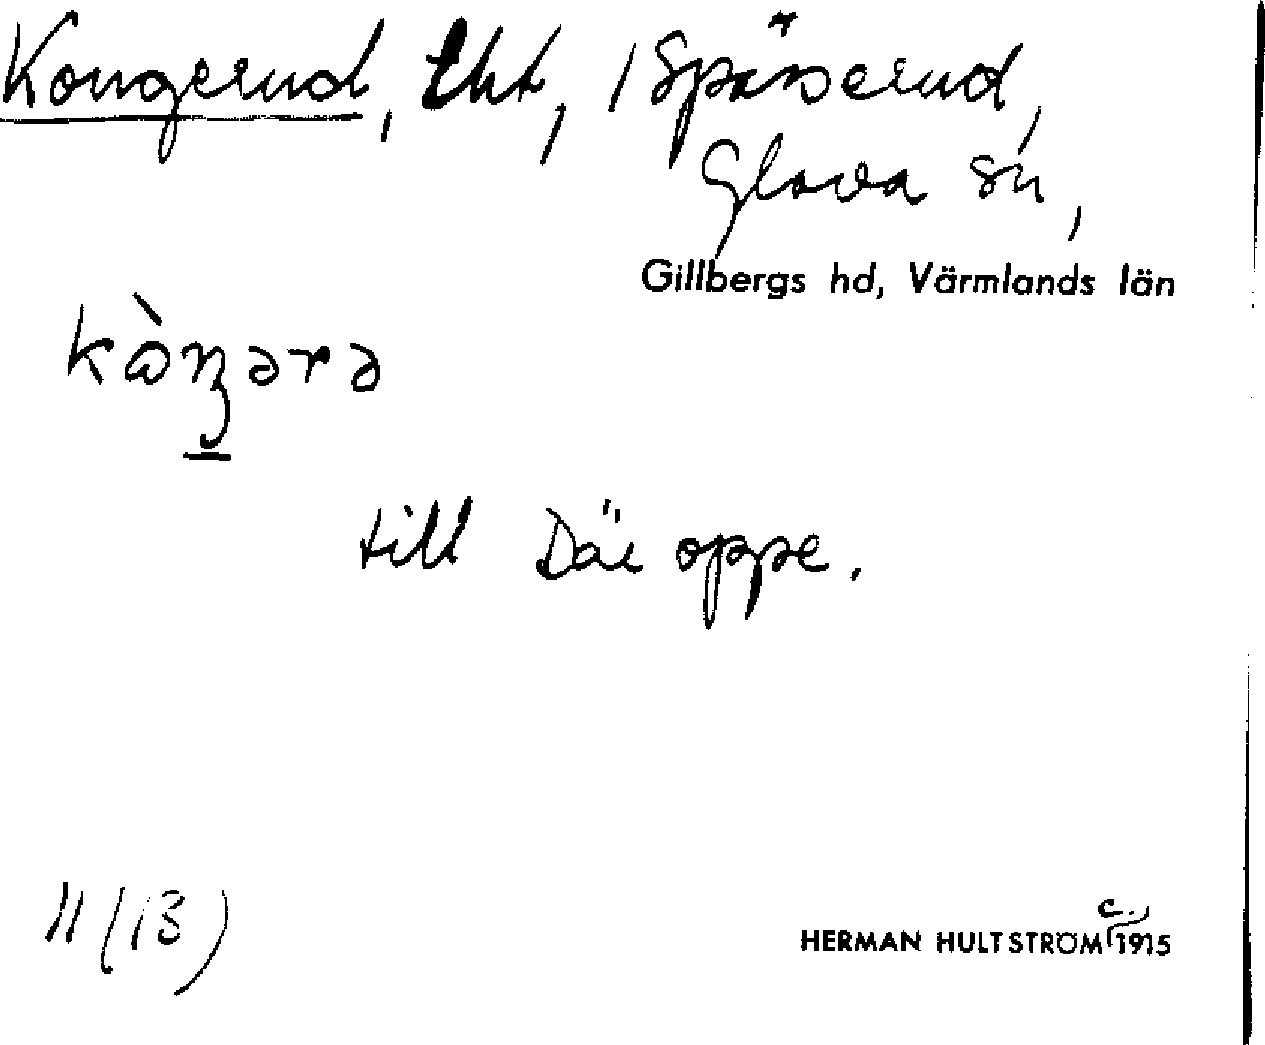 Kongerud, tht, i Späserud,
Glava sn,
Gillbergs hd, Värmlands län
till Där oppe.
11 (13)
HERMAN HULTSTRÖM c. 1915